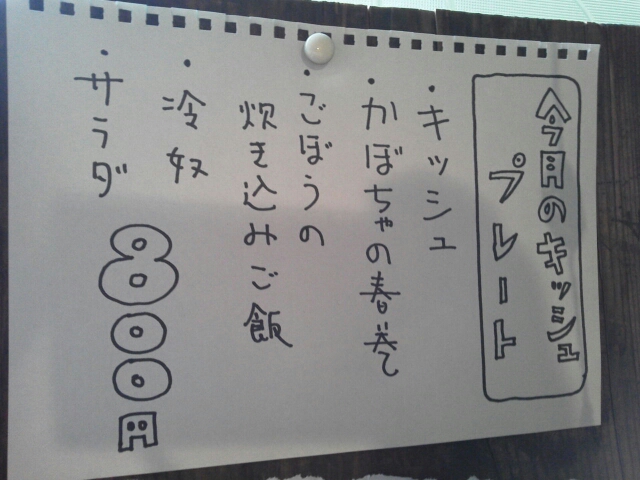 今日のキッシュ
プレート
・キッシュ
・かぼちゃの春巻
・ごぼうの
炊き込みご飯
・冷奴
・サラダ
800円